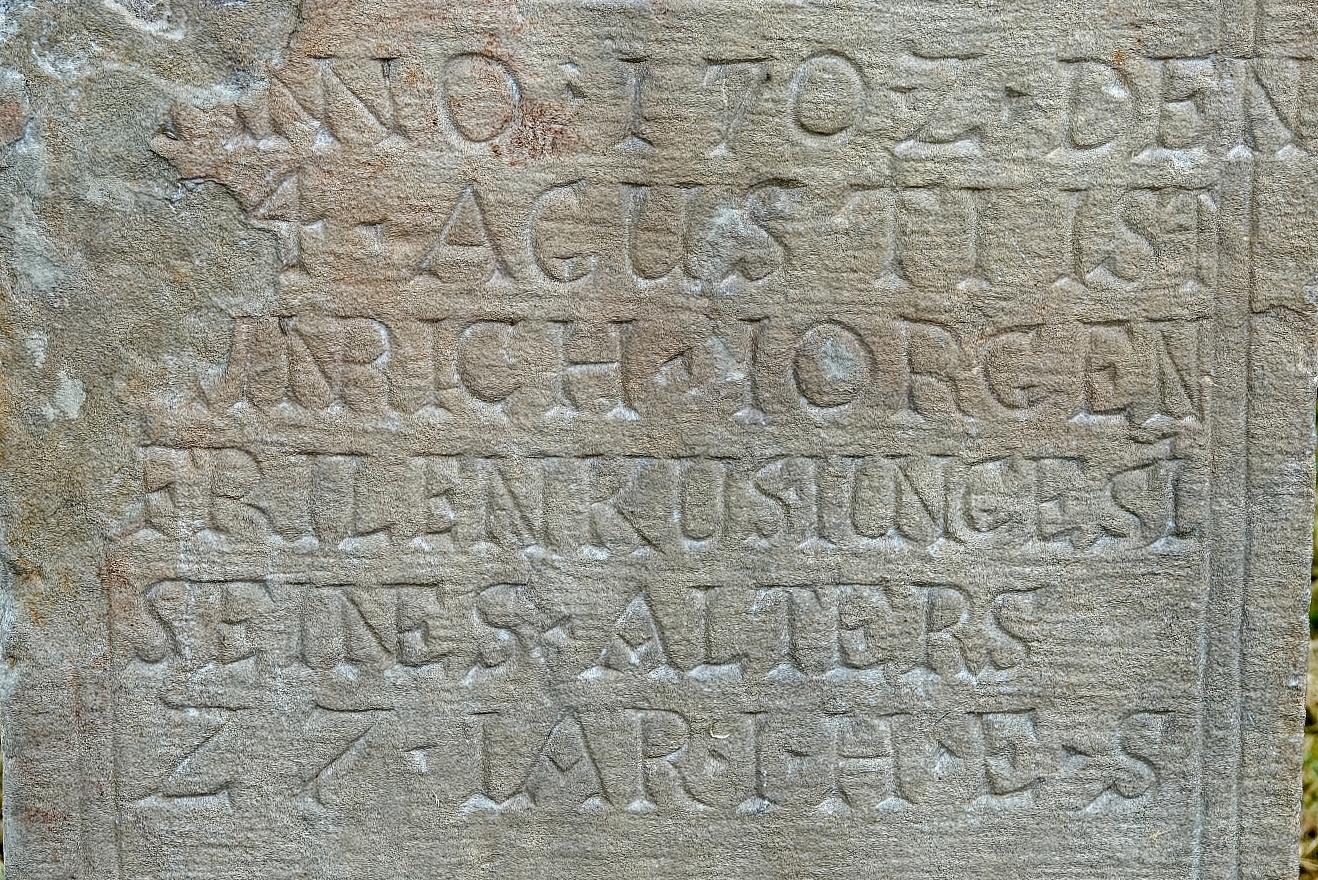 ANNO · 1702 · DEN
4 · AGUSTI IST
INRICH · IORGEN
ERLENKUSIN GEST
SEINES · ALTERS
27 · IAR · I · H · E · S